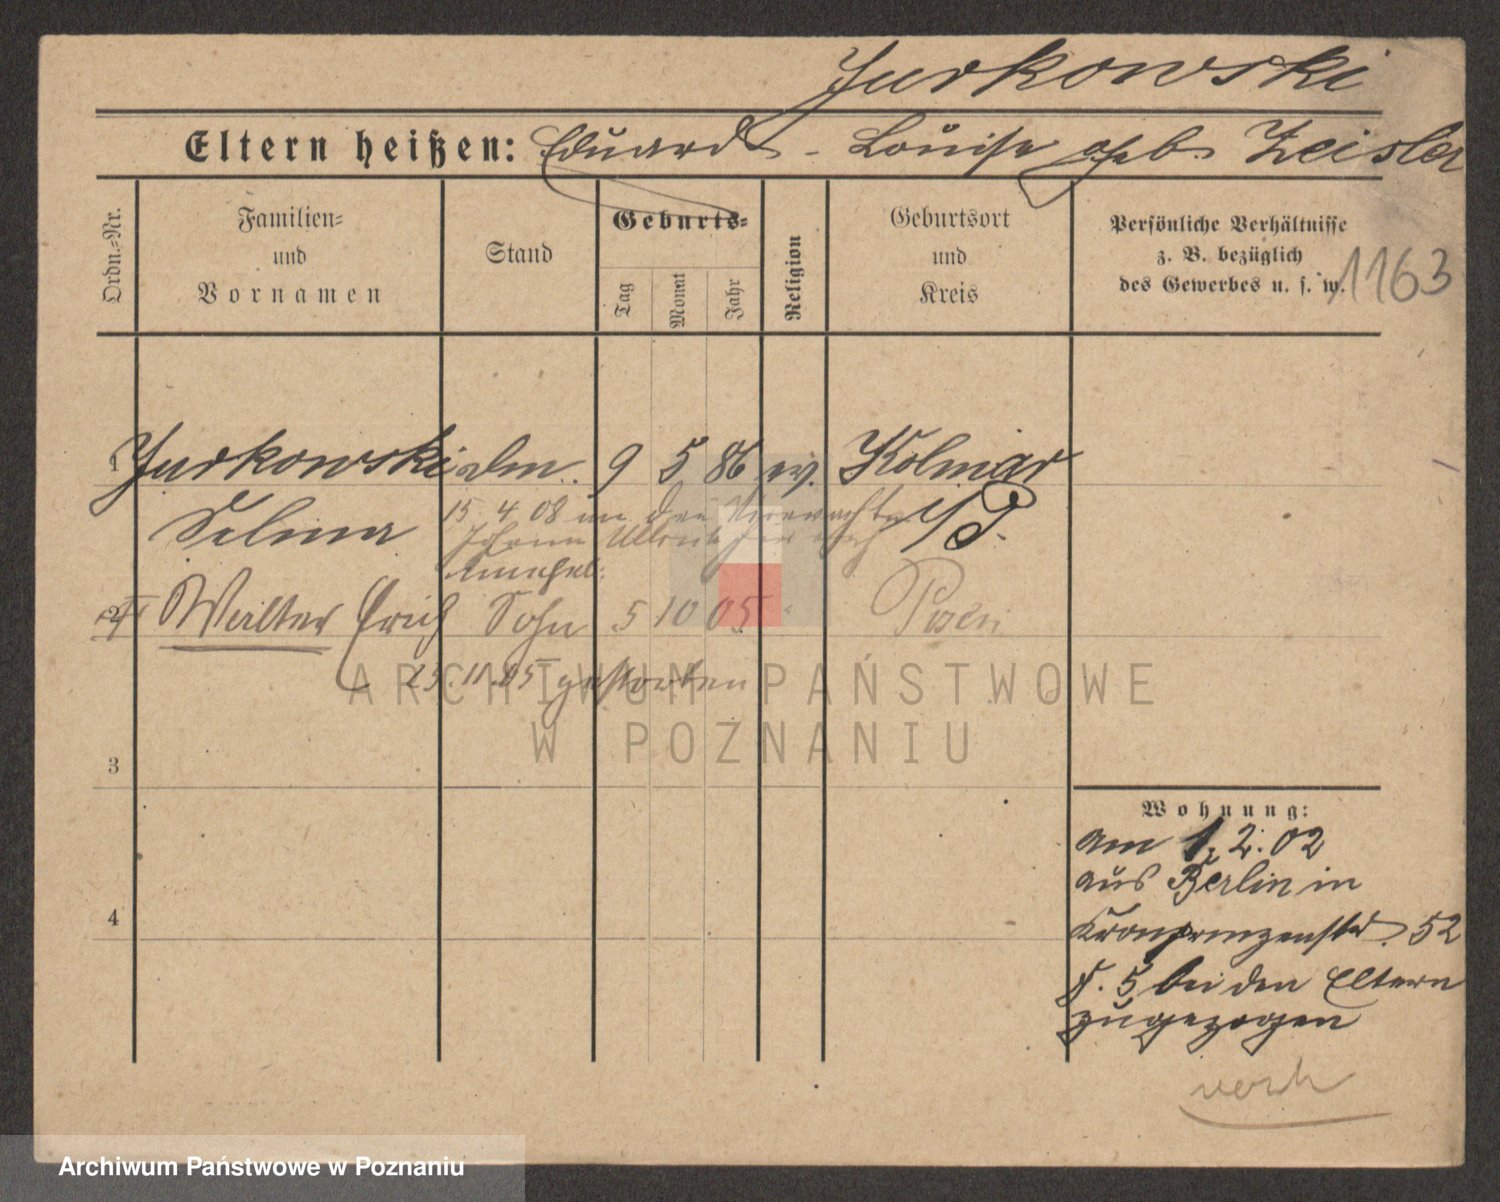 Jurkowski
Eltern heißen: Eduard - Louise geb. Zeisler
Ordn.-Nr.
Familien- und Vornamen
Stand
Geburts-
Tag
Monat
Jahr
Religion
Geburtsort und Kreis
Persönliche Verhältnisse
z. B. bezüglich
des Gewerbes u. s. w.
1163
1 Jurkowski 9 5 86 ev. Kolmar
Selma i/P.
15. 4. 08 an den
Johann
2 Walter Erich Sohn 5 10 05 Posen
23.11.05 gestorben
3
4
Wohnung:
am 1. 2. 02
aus Berlin in
Kronprinzenstr. 52
bei den Eltern
zugezogen
verh
ARCHIWUM PAŃSTWOWE
W POZNANIU
Archiwum Państwowe w Poznaniu